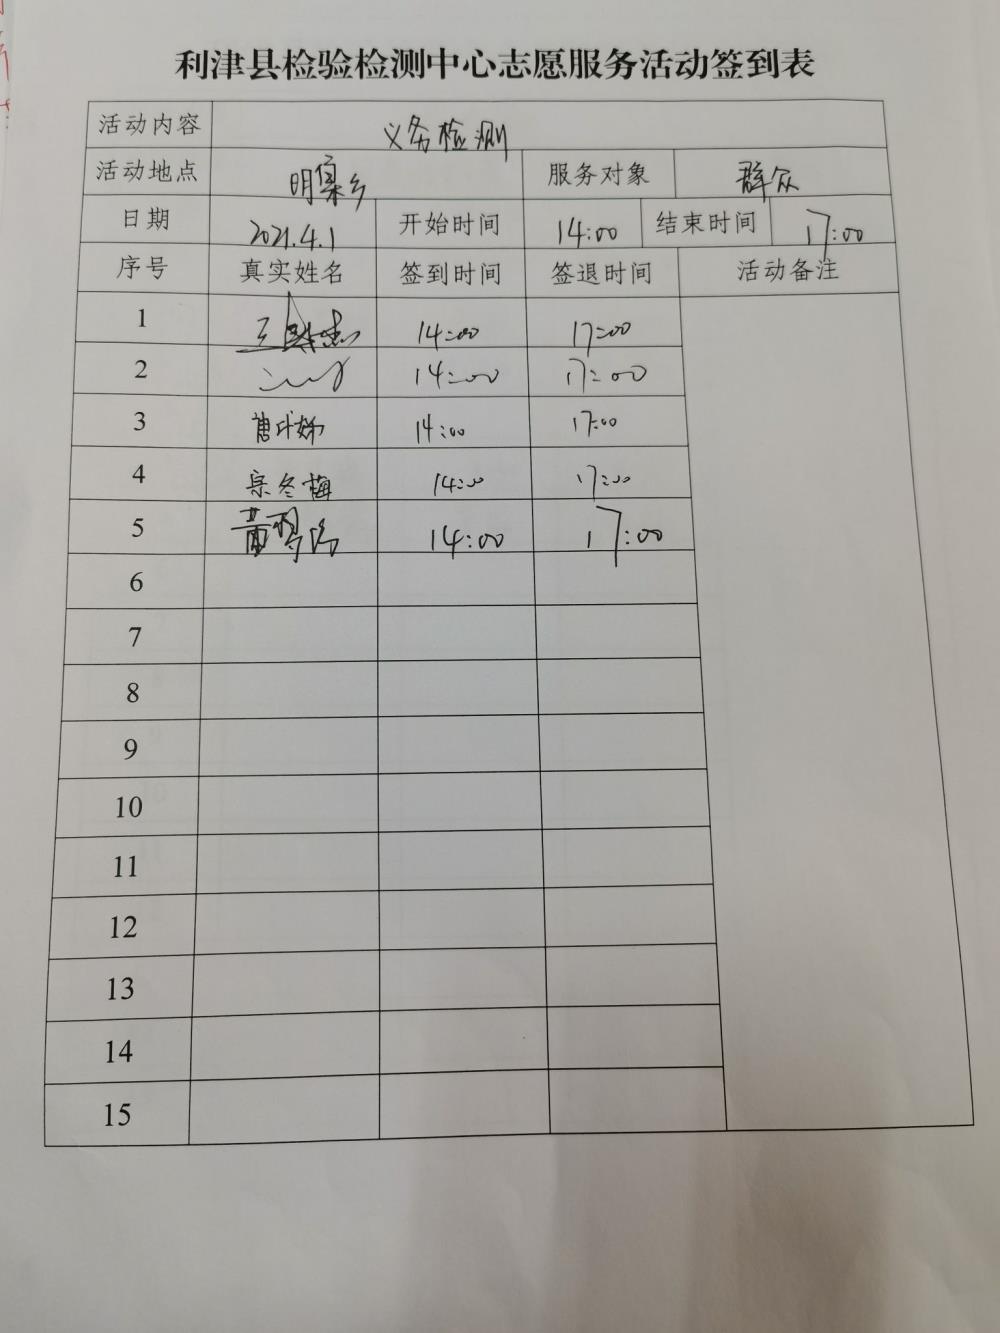 利津县检验检测中心志愿服务活动签到表
活动内容 义务检测
活动地点 明集乡 服务对象 群众
日期 2021.4.1 开始时间 14:00 结束时间 17:00
序号 真实姓名 签到时间 签退时间 活动备注
1 14:00 17:00
2 14:00 17:00
3 14:00 17:00
4 宗冬梅 14:00 17:00
5 14:00 17:00
6
7
8
9
10
11
12
13
14
15